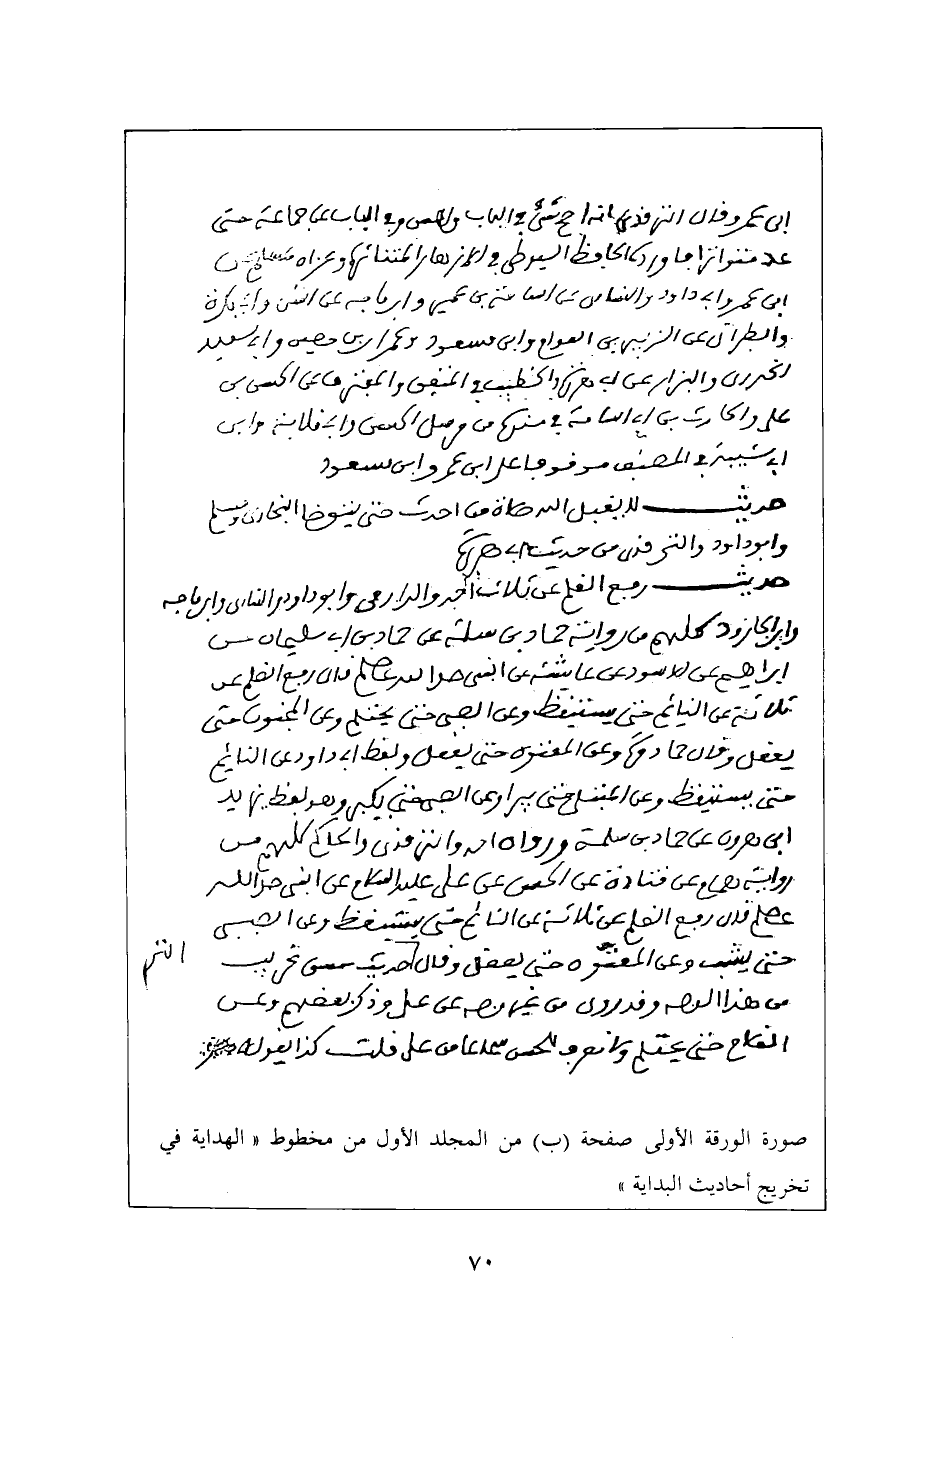 ابن عمر وقال الترمذي انه اصح شيء في الباب واحسن وفي الباب عن جماعة حتى
عد متواترا فاورده الحافظ السيوطي في الازهار المتناثرة وعزاه لمسلم عن
ابن عمر وابي داود والنسائي عن اسامة بن عمير وابن ماجه عن انس وابي بكرة
والطبراني عن الزبير بن العوام وابن مسعود وعمران بن حصين وابي سعيد
الخدري والبزار عن ابي هريرة والخطيب في المتفق والمفترق عن الحسن بن
علي والحارث بن ابي اسامة في مسنده من مرسل الحسن وابي قلابة وابن
ابي شيبة في المصنف موقوفا على ابن عمر وابن مسعود
حديث لا يقبل الله صلاة من احدث حتى يتوضا البخاري ومسلم
وابو داود والترمذي من حديث ابي هريرة
حديث رفع القلم عن ثلاث احمد والدارمي وابو داود والنسائي وابن ماجه
وابن الجارود كلهم من رواية حماد بن سلمة عن حماد بن ابي سليمان عن
ابراهيم عن الاسود عن عائشة عن النبي صلى الله عليه وسلم قال رفع القلم عن
ثلاثة عن النائم حتى يستيقظ وعن الصبي حتى يحتلم وعن المجنون حتى
يعقل وقال حماد وعن المعتوه حتى يعقل ولفظ ابي داود عن النائم
حتى يستيقظ وعن المبتلى حتى يبرا وعن الصبي حتى يكبر وهو لفظ يزيد
ابن هرون عن حماد بن سلمة ورواه احمد والترمذي والحاكم كلهم من
رواية همام عن قتادة عن الحسن عن علي عليه السلام عن النبي صلى الله
عليه وسلم قال رفع القلم عن ثلاثة عن النائم حتى يستيقظ وعن الصبي
حتى يشب وعن المعتوه حتى يعقل وقال الحديث حسن غريب
من هذا الوجه وقد روي من غير وجه عن علي وذكر بعضهم وعن
الغلام حتى يحتلم ولا نعرف للحسن سماعا من علي قلت كذا يقول
صورة الورقة الأولى صفحة (ب) من المجلد الأول من مخطوط « الهداية في
تخريج أحاديث البداية »
٧٠